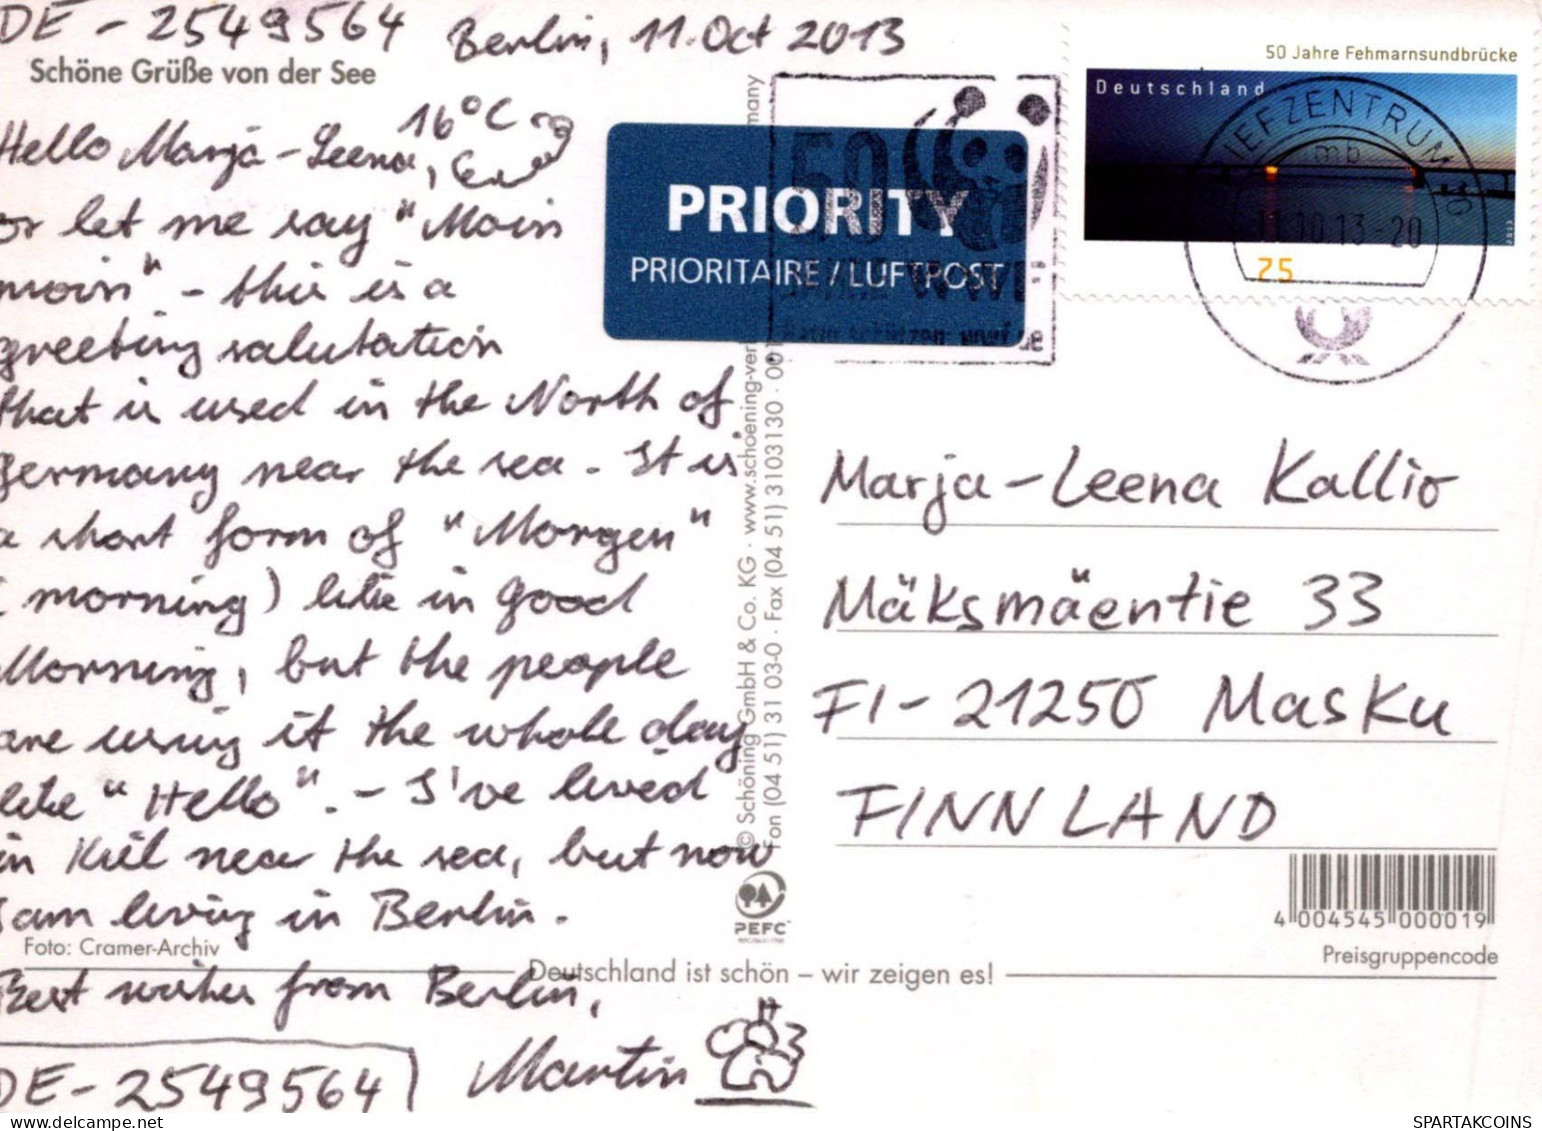 DE-2549564 Berlin, 11. Oct 2013
Schöne Grüße von der See
16°C
Hello Marja-Leena,
or let me say "Moin
moin" - this is a
greeting salutation
that is used in the North of
Germany near the sea. It is
a short form of "Morgen"
(morning) like in good
Morning, but the people
are using it the whole day
like "Hello". - I've lived
in Kiel near the sea, but now
I am living in Berlin.
Foto: Cramer-Archiv
Best wishes from Berlin,
Martin
DE-2549564
© Schöning GmbH & Co. KG · www.schoening-ver
many
Fon (04 51) 31 03-0 · Fax (04 51) 3103130 · 001
PEFC
Deutschland ist schön – wir zeigen es!
PRIORITY
PRIORITAIRE / LUFTPOST
50
WWF
50 Jahre Fehmarnsundbrücke
Deutschland
75
BRIEFZENTRUM
11.10.13-20
Marja-Leena Kallio
Mäksmäentie 33
FI-21250 Masku
FINNLAND
4 004545 000019
Preisgruppencode
SPARTAKCOINS